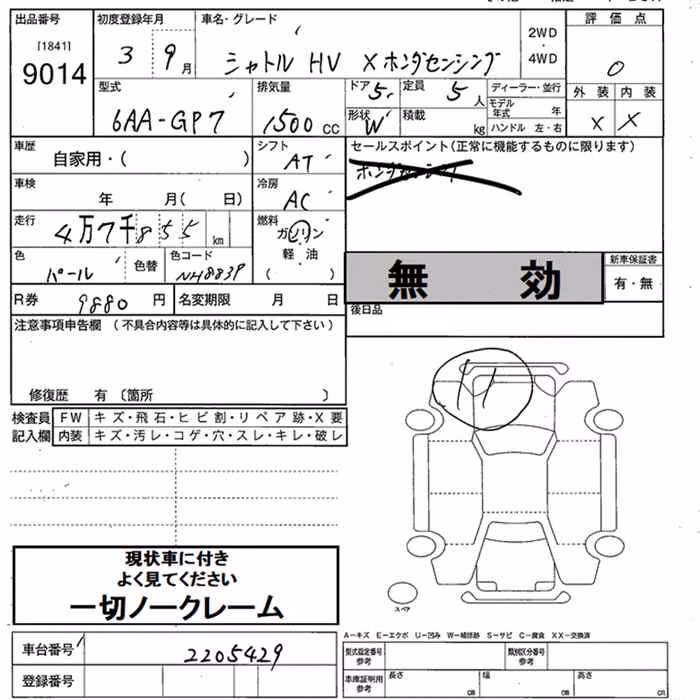 出品番号
[1841]
9014
初度登録年月
3 9月
車名・グレード
シャトル HV X ホンダセンシング
2WD
・
4WD
評価点
0
外装 内装
X X
型式
6AA-GP7
排気量
1500 CC
ドア 5
定員 5人
形状 W
積載 kg
ディーラー・並行
モデル年式 年
ハンドル 左・右
車歴
自家用・( )
シフト
AT
セールスポイント(正常に機能するものに限ります)
車検
年 月( 日)
冷房
AC
走行
4万7千855 km
燃料
ガソリン
軽油
( )
色
パール
色替
色コード
NH883P
無効
新車保証書
有・無
R券 9880 円
名変期限 月 日
後日品
注意事項申告欄 (不具合内容等は具体的に記入して下さい)
修復歴 有 〔箇所 〕
検査員
記入欄
FW キズ・飛石・ヒビ割・リペア跡・X要
内装 キズ・汚レ・コゲ・穴・スレ・キレ・破レ
現状車に付き
よく見てください
一切ノークレーム
スペア
A-キズ E-エクボ U-凹み W-補修跡 S-サビ C-腐食 XX-交換済
車台番号 2205429
登録番号
型式指定番号
参考
類別区分番号
参考
車庫証明用
参考
長さ cm
幅 cm
高さ cm